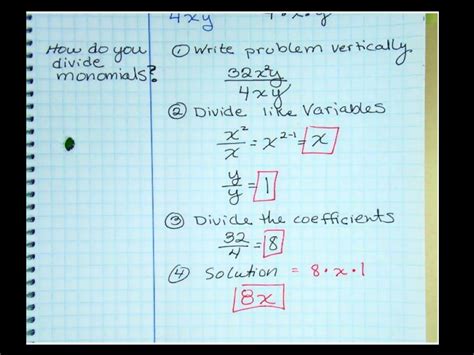 4xy
How do you
divide
monomials?
① Write problem vertically
32x²y
4xy
② Divide like Variables
x²/x = x²⁻¹ = x
y/y = 1
③ Divide the coefficients
32/4 = 8
④ Solution = 8·x·1
8x